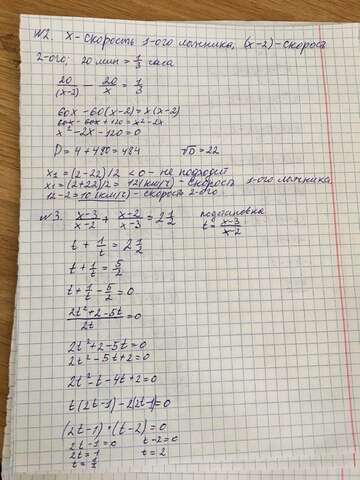 №2. x - скорость 1-ого лыжника, (x-2) - скорость
2-ого; 20 мин = 1/3 часа
20/(x-2) - 20/x = 1/3
60x - 60(x-2) = x(x-2)
60x - 60x + 120 = x² - 2x
x² - 2x - 120 = 0
D = 4 + 480 = 484 √D = 22
x₂ = (2-22)/2 < 0 - не подходит
x₁ = (2+22)/2 = 12 (км/ч) - скорость 1-ого лыжника
12-2 = 10 (км/ч) - скорость 2-ого
№3. x-3/x-2 + x-2/x-3 = 2 1/2 подстановка
t = x-3/x-2
t + 1/t = 2 1/2
t + 1/t = 5/2
t + 1/t - 5/2 = 0
2t² + 2 - 5t/2t = 0
2t² + 2 - 5t = 0
2t² - 5t + 2 = 0
2t² - t - 4t + 2 = 0
t(2t-1) - 2(2t-1) = 0
(2t-1) · (t-2) = 0
2t-1 = 0 t-2 = 0
2t = 1 t = 2
t = 1/2